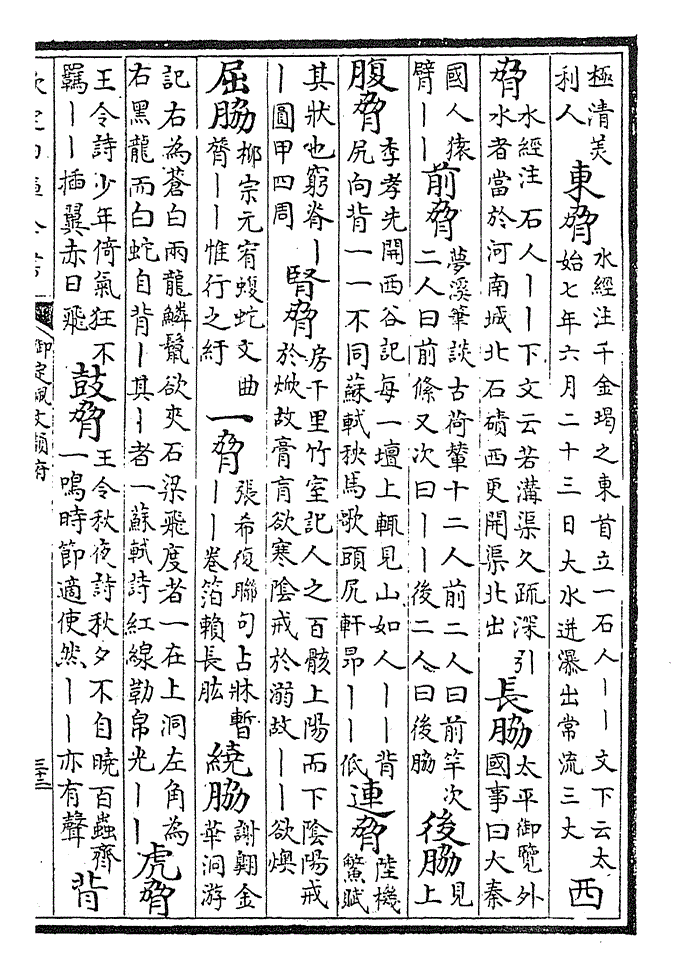 極清美
利人
東脅
水經注千金堨之東首立一石人丨丨文下云太
始七年六月二十三日大水迸瀑出常流三丈
西
脅
水經注石人丨丨下文云若溝渠久疏深引
水者當於河南城北石磧西更開渠北出
長脇
太平御覽外
國事曰大秦
國人猿
臂丨丨
前脅
夢溪筆談古荷輦十二人前二人曰前竿次
二人曰前條又次曰丨丨後二人曰後脇
後脇
見
上
腹脅
李孝先開西谷記每一壇上輒見山如人丨丨背
尻向背一一不同蘇軾秧馬歌頭尻軒昂丨丨低
連脅
陸機
鱉賦
其狀也窮脊丨
丨圓甲四周
腎脅
房千里竹室記人之百骸上陽而下陰陽戒
於焮故膏肓欲寒陰戒於溺故丨丨欲燠
屈脇
柳宗元宥蝮虵文曲
膂丨丨惟行之紆
一脅
張希復聯句占牀暫
丨丨卷箔賴長肱
繞脇
謝翺金
華洞游
記右為蒼白兩龍鱗鬣欲夾石梁飛度者一在上洞左角為
右黑龍而白蛇自背丨其丨者一蘇軾詩紅線勒帛光丨丨
虎脅
王令詩少年倚氣狂不
羈丨丨插翼赤日飛
鼓脅
王令秋夜詩秋夕不自曉百蟲齊
一鳴時節適使然丨丨亦有聲
背
欽定四庫全書
御定佩文韻府
三十三